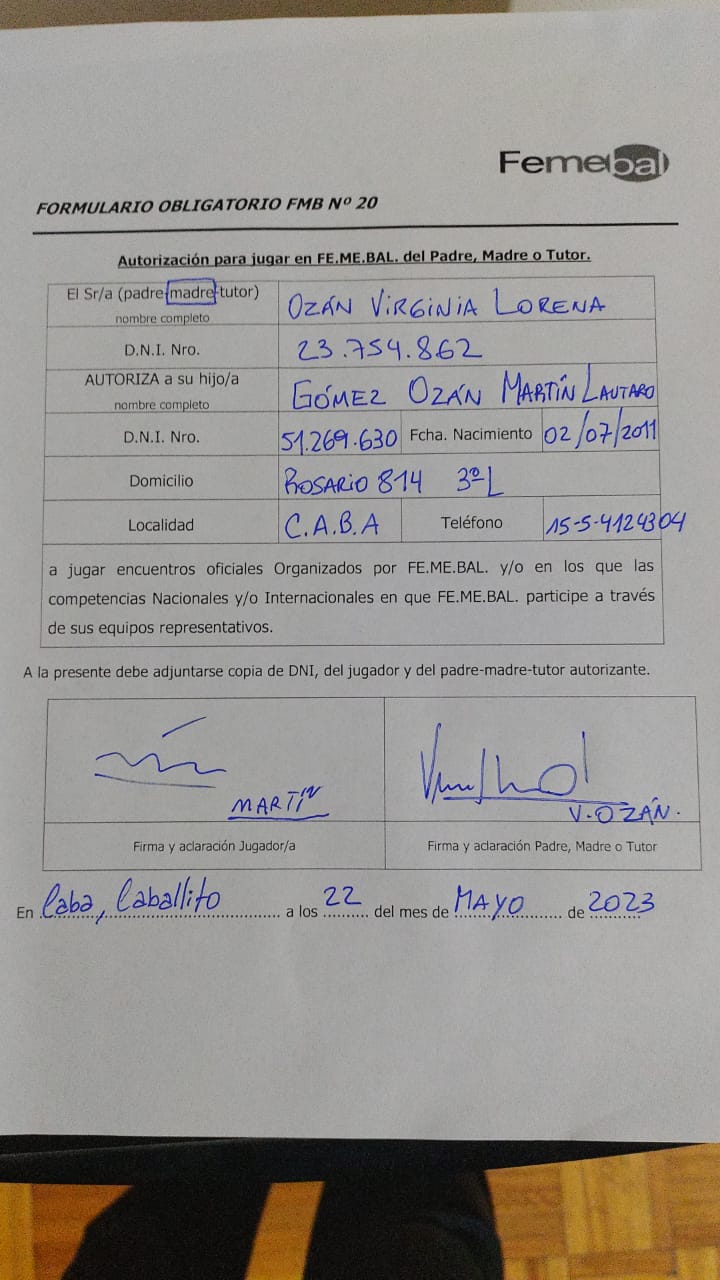 Femebal
FORMULARIO OBLIGATORIO FMB Nº 20
Autorización para jugar en FE.ME.BAL. del Padre, Madre o Tutor.
El Sr/a (padre-madre-tutor)
nombre completo
OZÁN VIRGINIA LORENA
D.N.I. Nro.
23.754.862
AUTORIZA a su hijo/a
nombre completo
GÓMEZ OZÁN MARTÍN LAUTARO
D.N.I. Nro.
51.269.630
Fcha. Nacimiento
02/07/2011
Domicilio
ROSARIO 814 3º L
Localidad
C.A.B.A
Teléfono
15-5-4124304
a jugar encuentros oficiales Organizados por FE.ME.BAL. y/o en los que las
competencias Nacionales y/o Internacionales en que FE.ME.BAL. participe a través
de sus equipos representativos.
A la presente debe adjuntarse copia de DNI, del jugador y del padre-madre-tutor autorizante.
MARTÍN
V. OZÁN.
Firma y aclaración Jugador/a
Firma y aclaración Padre, Madre o Tutor
En Caba, Caballito a los 22 del mes de MAYO de 2023